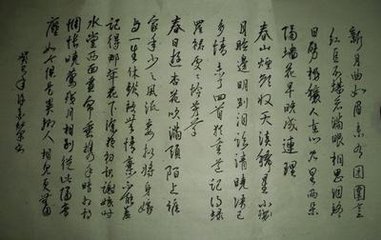 新月曲如眉未有團圞意
紅豆不堪看滿眼相思淚終
日劈桃穰人在心兒里兩朵
隔墻花早晚成連理
春山煙欲收天淡稀星小殘
月臉邊明別淚臨清曉語已
多情未了回首猶重道記得綠
羅裙處處憐芳草
春日遊杏花吹滿頭陌上誰
家年少足風流妾擬將身嫁
與一生休縱被無情棄不能羞
記得那年花下深夜初識謝娘時
水堂西面畫簾垂攜手暗相期
惆悵曉鶯殘月相別從此隔音
塵如今俱是異鄉人相見更無因